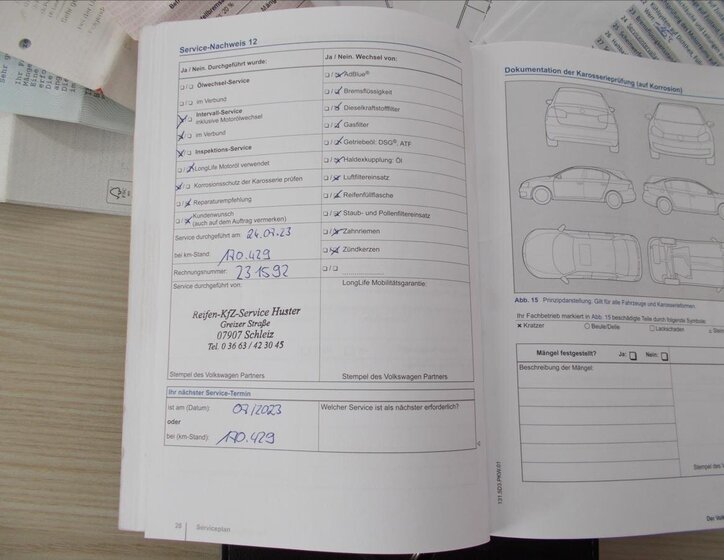 Service-Nachweis 12
Ja / Nein. Durchgeführt wurde:
Ölwechsel-Service
im Verbund
Intervall-Service
inklusive Motorölwechsel
im Verbund
Inspektions-Service
LongLife Motoröl verwendet
Korrosionsschutz der Karosserie prüfen
Reparaturempfehlung
Kundenwunsch
(auch auf dem Auftrag vermerken)
Service durchgeführt am: 24.07.23
bei km-Stand: 170.429
Rechnungsnummer: 231592
Service durchgeführt von:
Reifen-KfZ-Service Huster
Greizer Straße
07907 Schleiz
Tel. 0 36 63 / 42 30 45
Stempel des Volkswagen Partners
Ja / Nein. Wechsel von:
AdBlue®
Bremsflüssigkeit
Dieselkraftstofffilter
Gasfilter
Getriebeöl: DSG®, ATF
Haldexkupplung: Öl
Luftfiltereinsatz
Reifenfüllflasche
Staub- und Pollenfiltereinsatz
Zahnriemen
Zündkerzen
LongLife Mobilitätsgarantie:
Stempel des Volkswagen Partners
Ihr nächster Service-Termin
ist am (Datum): 07/2023
oder
bei (km-Stand): 170.429
Welcher Service ist als nächster erforderlich?
26 Serviceplan
Dokumentation der Karosserieprüfung (auf Korrosion)
Abb. 15 Prinzipdarstellung: Gilt für alle Fahrzeuge und Karosserieformen.
Ihr Fachbetrieb markiert in Abb. 15 beschädigte Teile durch folgende Symbole:
x Kratzer ○ Beule/Delle □ Lackschaden
Mängel festgestellt? Ja: Nein:
Beschreibung der Mängel:
Stempel des
131.5D3.PKW.01